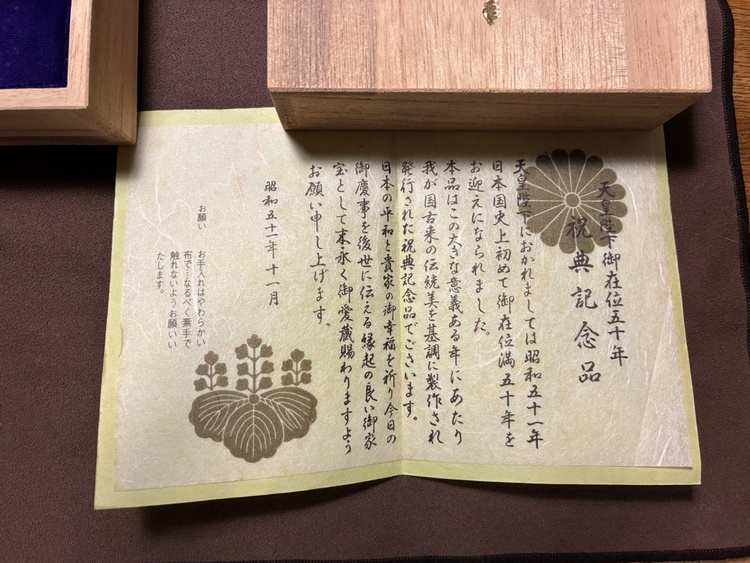 天皇陛下御在位五十年
祝典記念品
天皇陛下におかれましては昭和五十一年
日本国史上初めて御在位満五十年を
お迎えになられました。
本品はこの大きな意義ある年にあたり
我が国古来の伝統美を基調に製作され
発行された祝典記念品でございます。
日本の平和と貴家の御幸福を祈り今日の
御慶事を後世に伝える縁起の良い御家
宝として末永く御愛蔵賜わりますよう
お願い申し上げます。
昭和五十一年十一月
お願い　お手入れはやわらかい
布で…なるべく素手で
触れないようお願いい
たします。